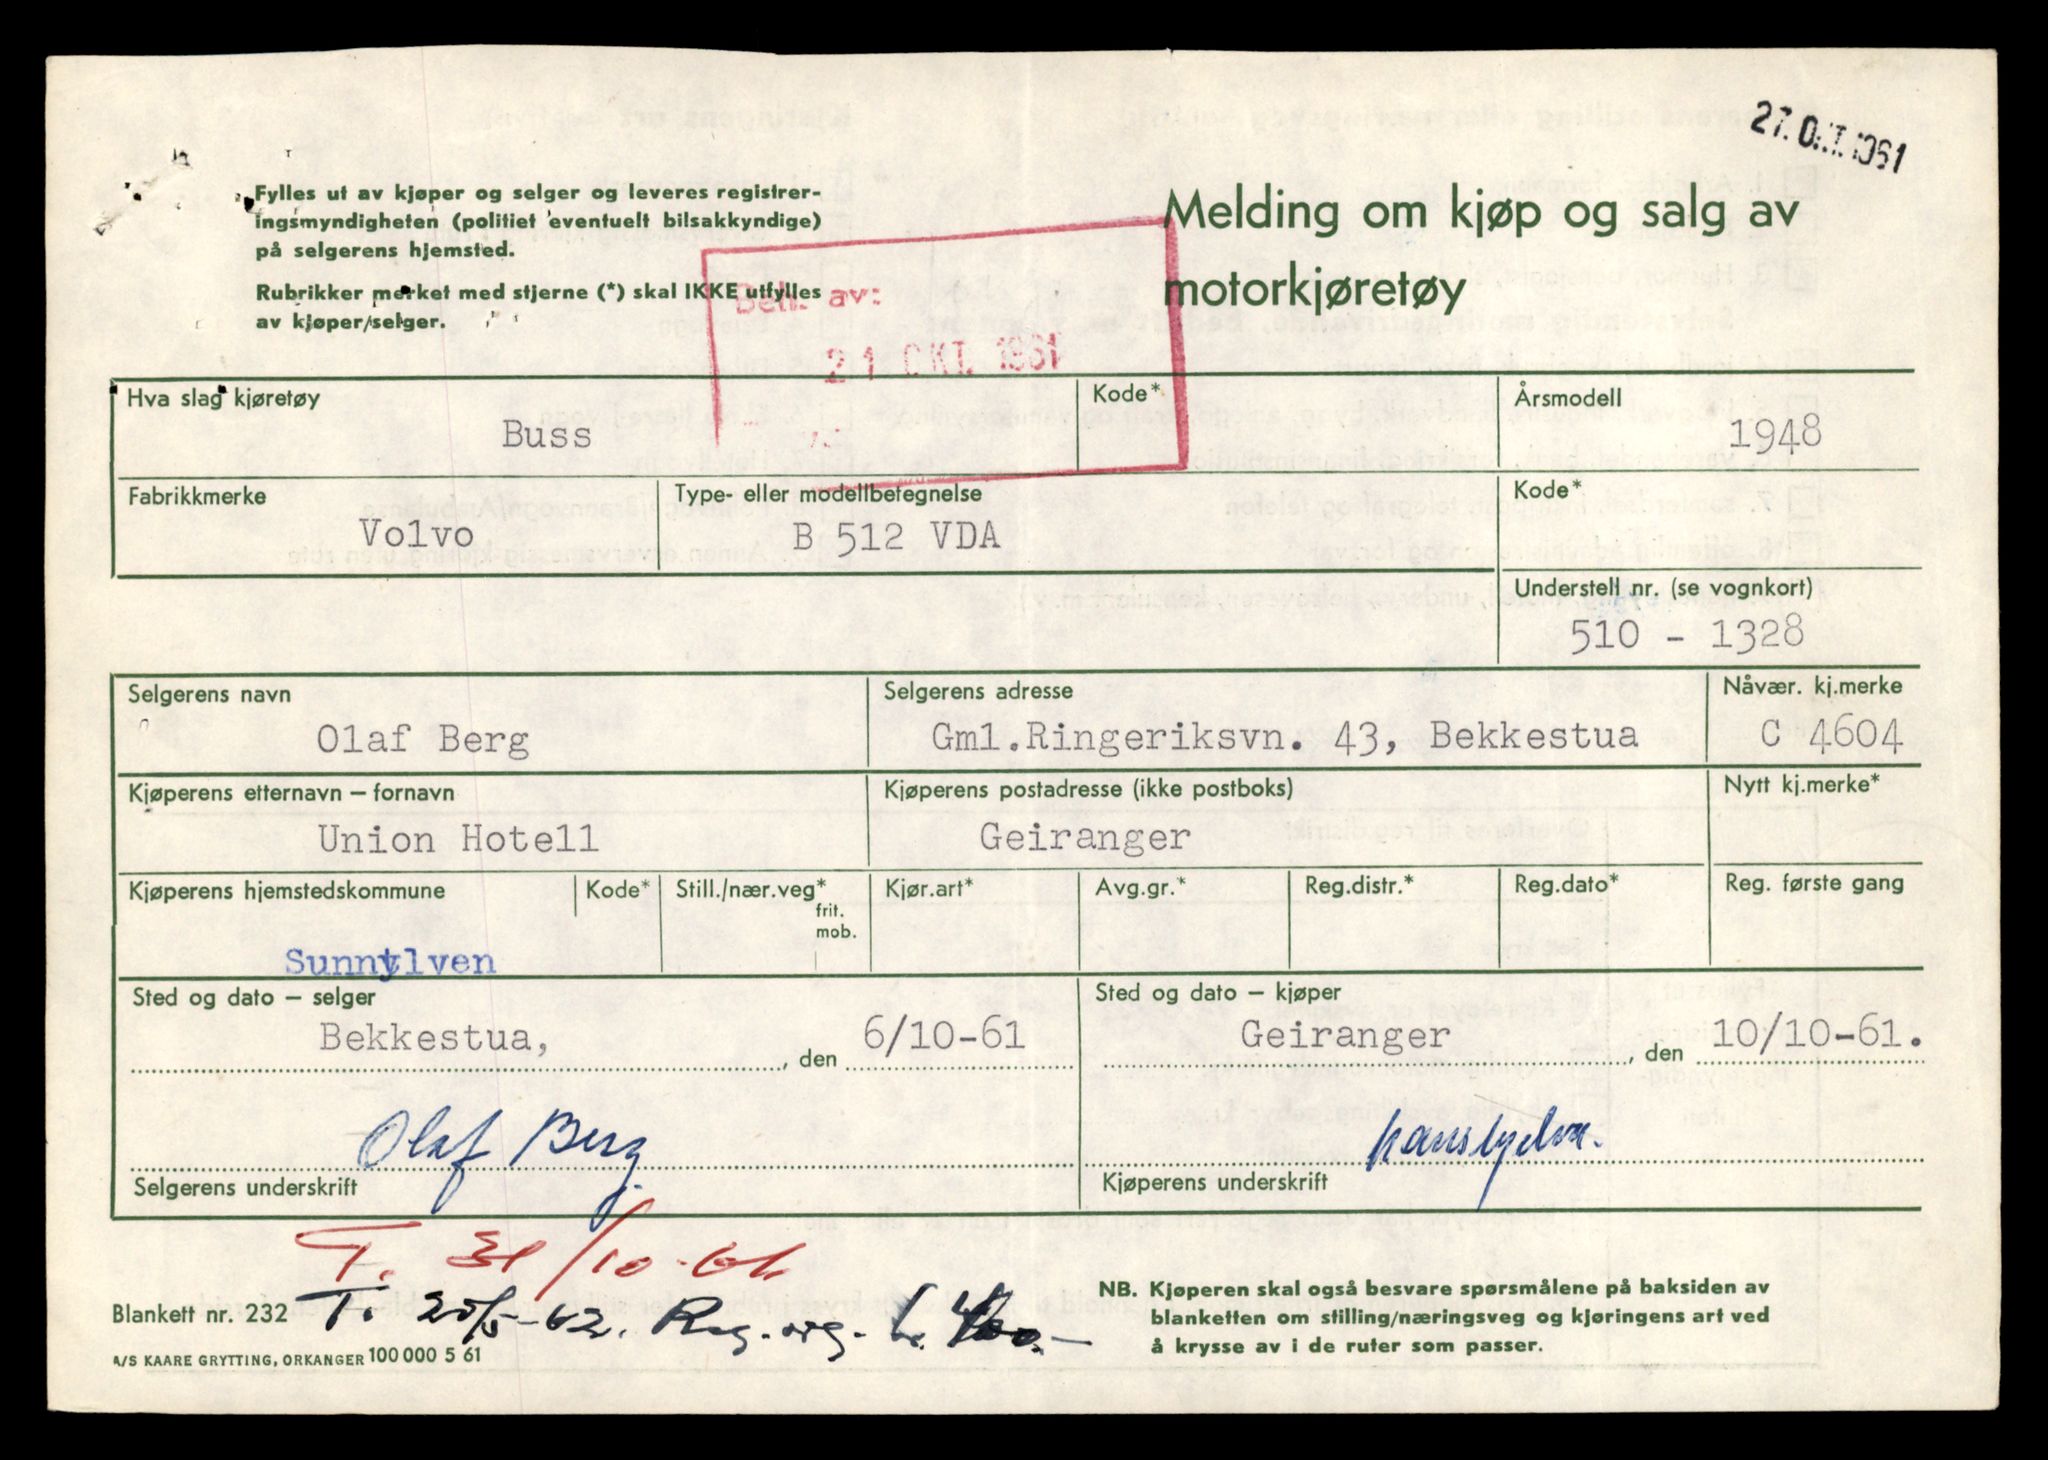 27. OKT. 1961
Fylles ut av kjøper og selger og leveres registrer-
ingsmyndigheten (politiet eventuelt bilsakkyndige)
på selgerens hjemsted.
Rubrikker merket med stjerne (*) skal IKKE utfylles
av kjøper/selger.
Melding om kjøp og salg av
motorkjøretøy
Beh. av:
21 OKT. 1961
Hva slag kjøretøy
Kode*
Årsmodell
Buss
1948
Fabrikkmerke
Type- eller modellbetegnelse
Kode*
Volvo
B 512 VDA
Understell nr. (se vognkort)
510 - 1328
Selgerens navn
Selgerens adresse
Nåvær. kj.merke
Olaf Berg
Gml.Ringeriksvn. 43, Bekkestua
C 4604
Kjøperens etternavn – fornavn
Kjøperens postadresse (ikke postboks)
Nytt kj.merke*
Union Hotell
Geiranger
Kjøperens hjemstedskommune
Kode*
Still./nær.veg*
frit.
mob.
Kjør.art*
Avg.gr.*
Reg.distr.*
Reg.dato*
Reg. første gang
Sunnylven
Sted og dato – selger
Sted og dato – kjøper
Bekkestua, , den 6/10-61
Geiranger , den 10/10-61.
Olaf Berg
Selgerens underskrift
Kjøperens underskrift
T. 31/10-61
T. 25/5-62. Reg.
Blankett nr. 232
A/S KAARE GRYTTING, ORKANGER 100 000 5 61
NB. Kjøperen skal også besvare spørsmålene på baksiden av
blanketten om stilling/næringsveg og kjøringens art ved
å krysse av i de ruter som passer.